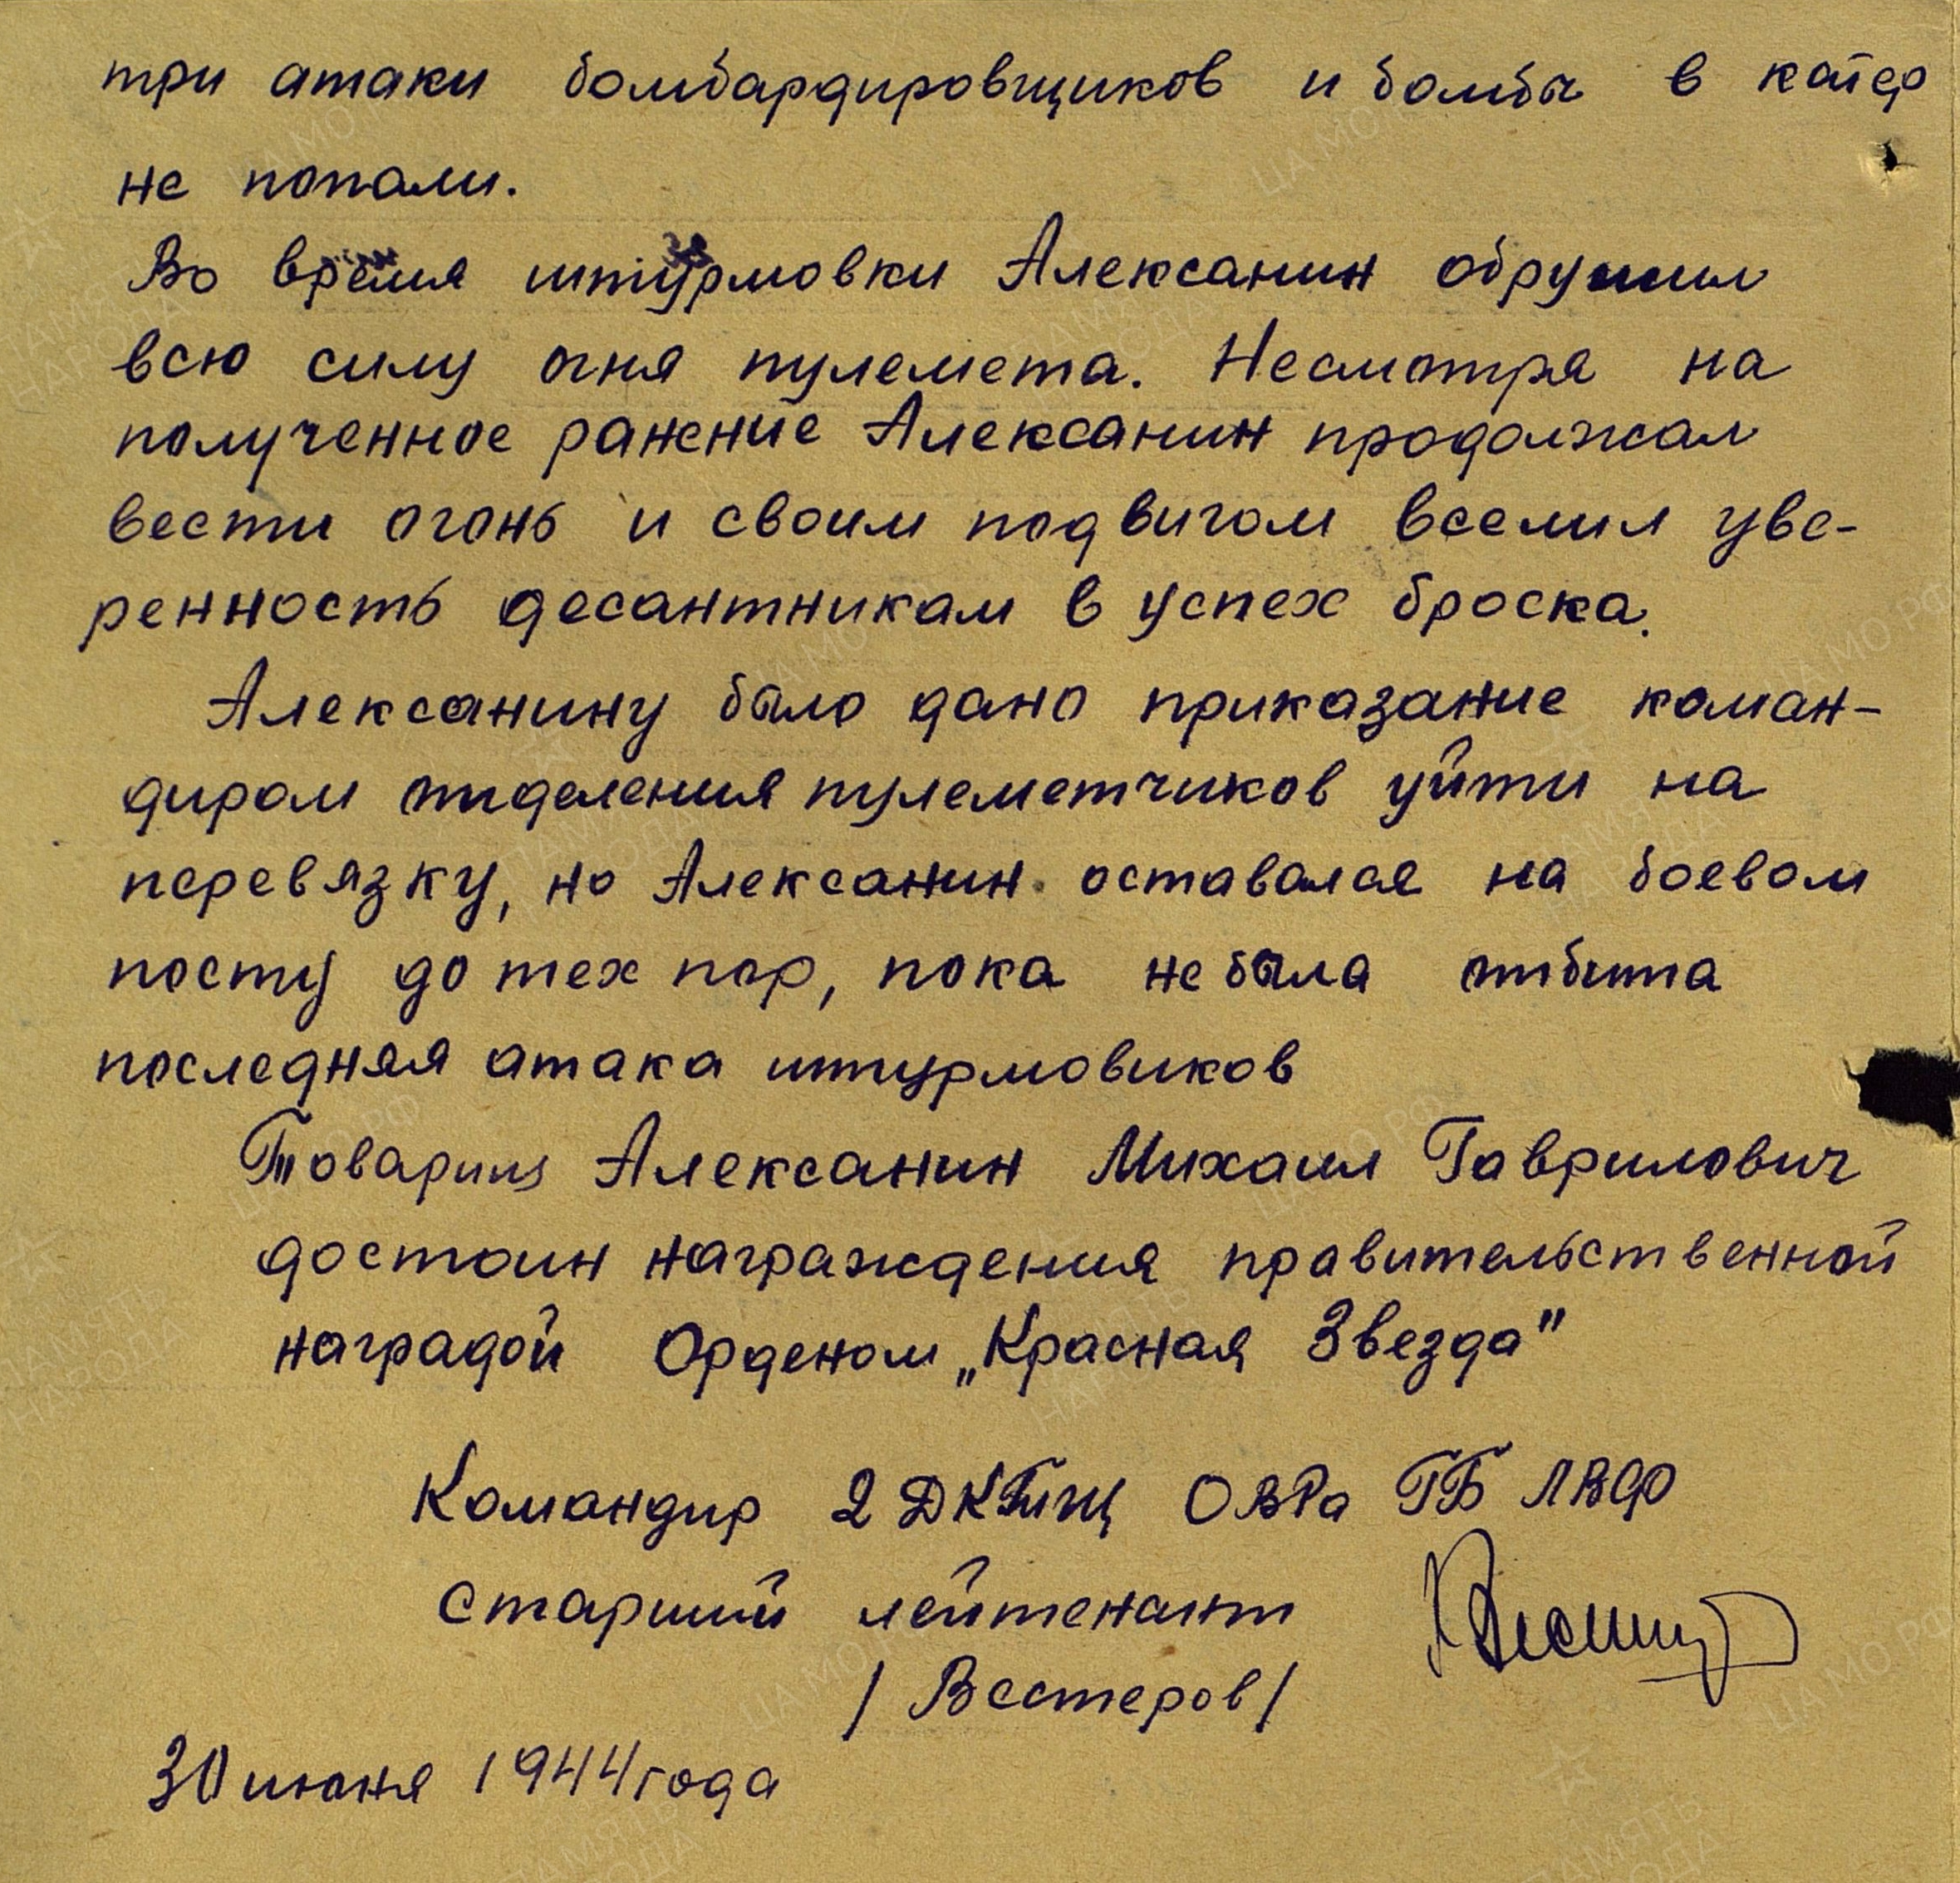 три атаки бомбардировщиков и бомбы в катер
не попали.
Во время штурмовки Алексанин обрушил
всю силу огня пулемета. Несмотря на
полученное ранение Алексанин продолжал
вести огонь и своим подвигом вселил уве-
ренность десантникам в успех броска.
Алексанину было дано приказание коман-
диром отделения пулеметчиков уйти на
перевязку, но Алексанин оставался на боевом
посту до тех пор, пока не была отбита
последняя атака штурмовиков
Товарищ Алексанин Михаил Гаврилович
достоин награждения правительственной
наградой Орденом „Красная Звезда"
Командир 2 ДКТЩ ОВРа ГБ ЛВФ
старший лейтенант
/ Вестеров /
30 июня 1944 года
ПАМЯТЬ НАРОДА
ЦА МО РФ